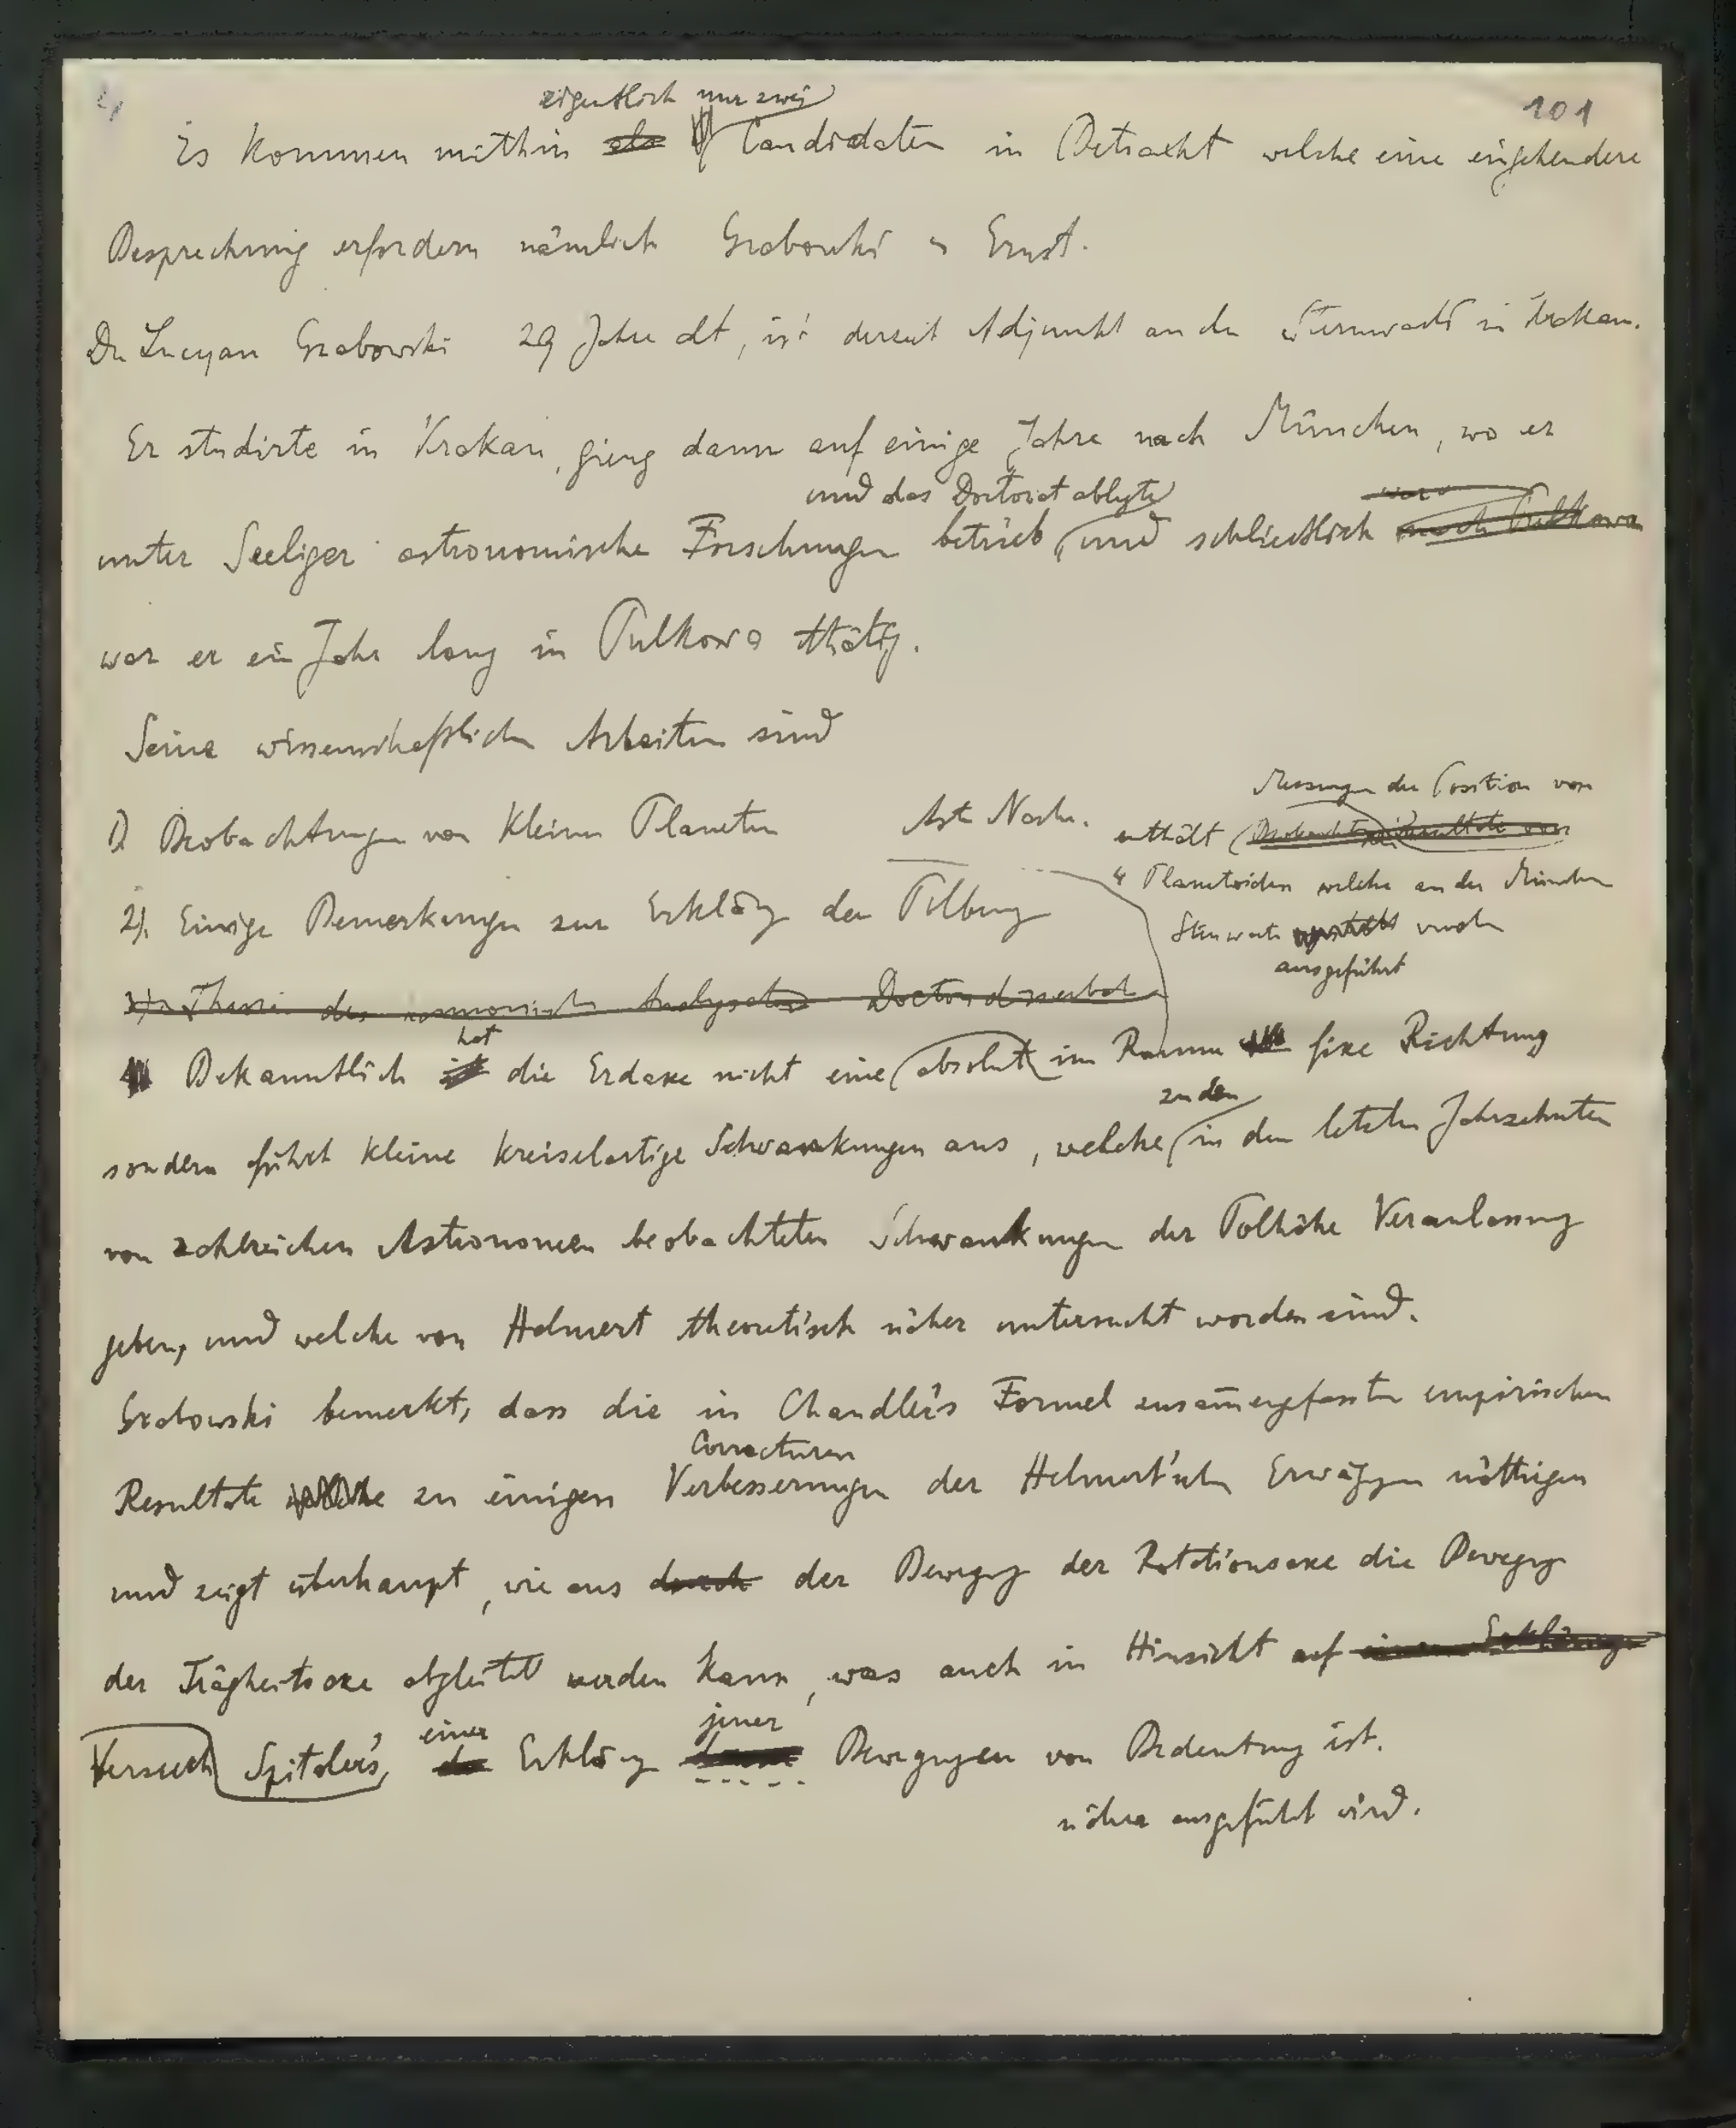 101
eigentlich nur zwei
Es kommen mithin als Candidaten in Betracht welche eine eingehendere
Besprechung erfordern nämlich Grabowski u Ernst.
Dr Lucyan Grabowski 29 Jahre alt, ist derzeit Adjunkt an der Sternwarte in Krakau.
Er studirte in Krakau, gieng dann auf einige Jahre nach München, wo er
und das Doctorat ablegte
unter Seeliger astronomische Forschungen betrieb, und schliesslich nach Pulkowa
war er ein Jahr lang in Pulkowa thätig.
Seine wissenschaftlichen Arbeiten sind
1) Beobachtungen von kleinen Planeten Ast. Nachr.
enthält Messungen der Position von
4 Planetoiden welche an der Münchn
Sternwarte wurden
ausgeführt
2). Einige Bemerkungen zur Erklärg der Polbewg
3) Theorie des harmonischen Analysators Doctordissertation
hat
Bekanntlich ist die Erdaxe nicht eine absolut im Raume fixe Richtung
zu den
sondern führt kleine kreiselartige Schwankungen aus, welche in den letzten Jahrzehnten
von zahlreichen Astronomen beobachteten Schwankungen der Polhöhe Veranlassung
geben, und welche von Helmert theoretisch näher untersucht worden sind.
Grabowski bemerkt, dass die in Chandler's Formel zusam̄engefassten empirischen
Correcturen
Resultate zu einigen Verbesserungen der Helmert'schen Erwäggen nöthigen
und zeigt überhaupt, wie aus durch der Bewegg der Rotationsaxe die Bewegg
der Trägheitsaxe abgeleitet werden kann, was auch in Hinsicht auf einen Erklärungs
einer jener
Versuch Spitaler's, der Erklärg Bewegungen von Bedeutung ist.
näher ausgeführt wird.